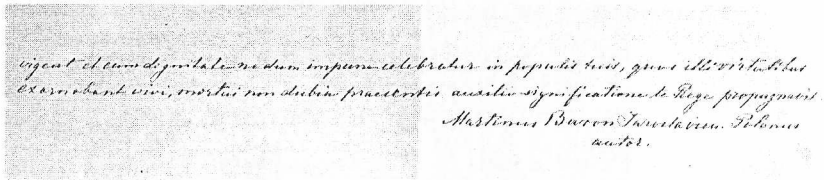 vigeat et cum dignitate nedum impune celebretur in populis tuis, quos illi virtutibus
exornabant vivi, mortui non dubia praesentis auxilii significatione te Rege propugnavit.
Martinus Baron Polonus
autor.